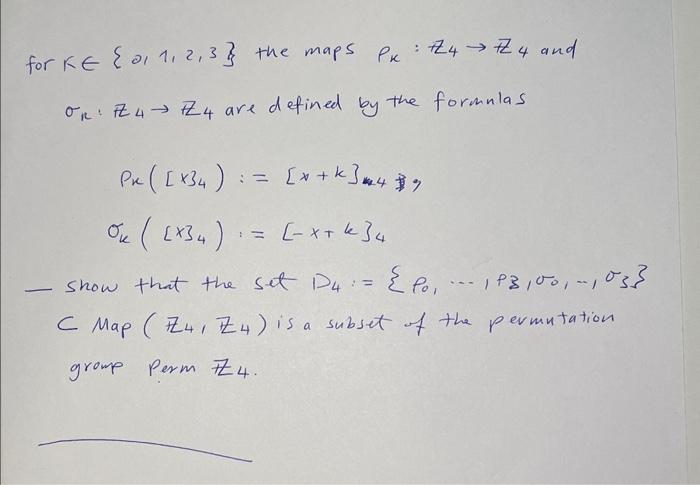 for K∈ {0, 1, 2, 3} the maps ρₖ : ℤ4 → ℤ4 and
σₖ : ℤ4 → ℤ4 are defined by the formulas
ρₖ ([x]₄) := [x + k]₄,
σₖ ([x]₄) := [-x + k]₄
— show that the set D₄ := {ρ₀, ..., ρ3, σ₀, .., σ3}
⊂ Map (ℤ4, ℤ4) is a subset of the permutation
group Perm ℤ4.